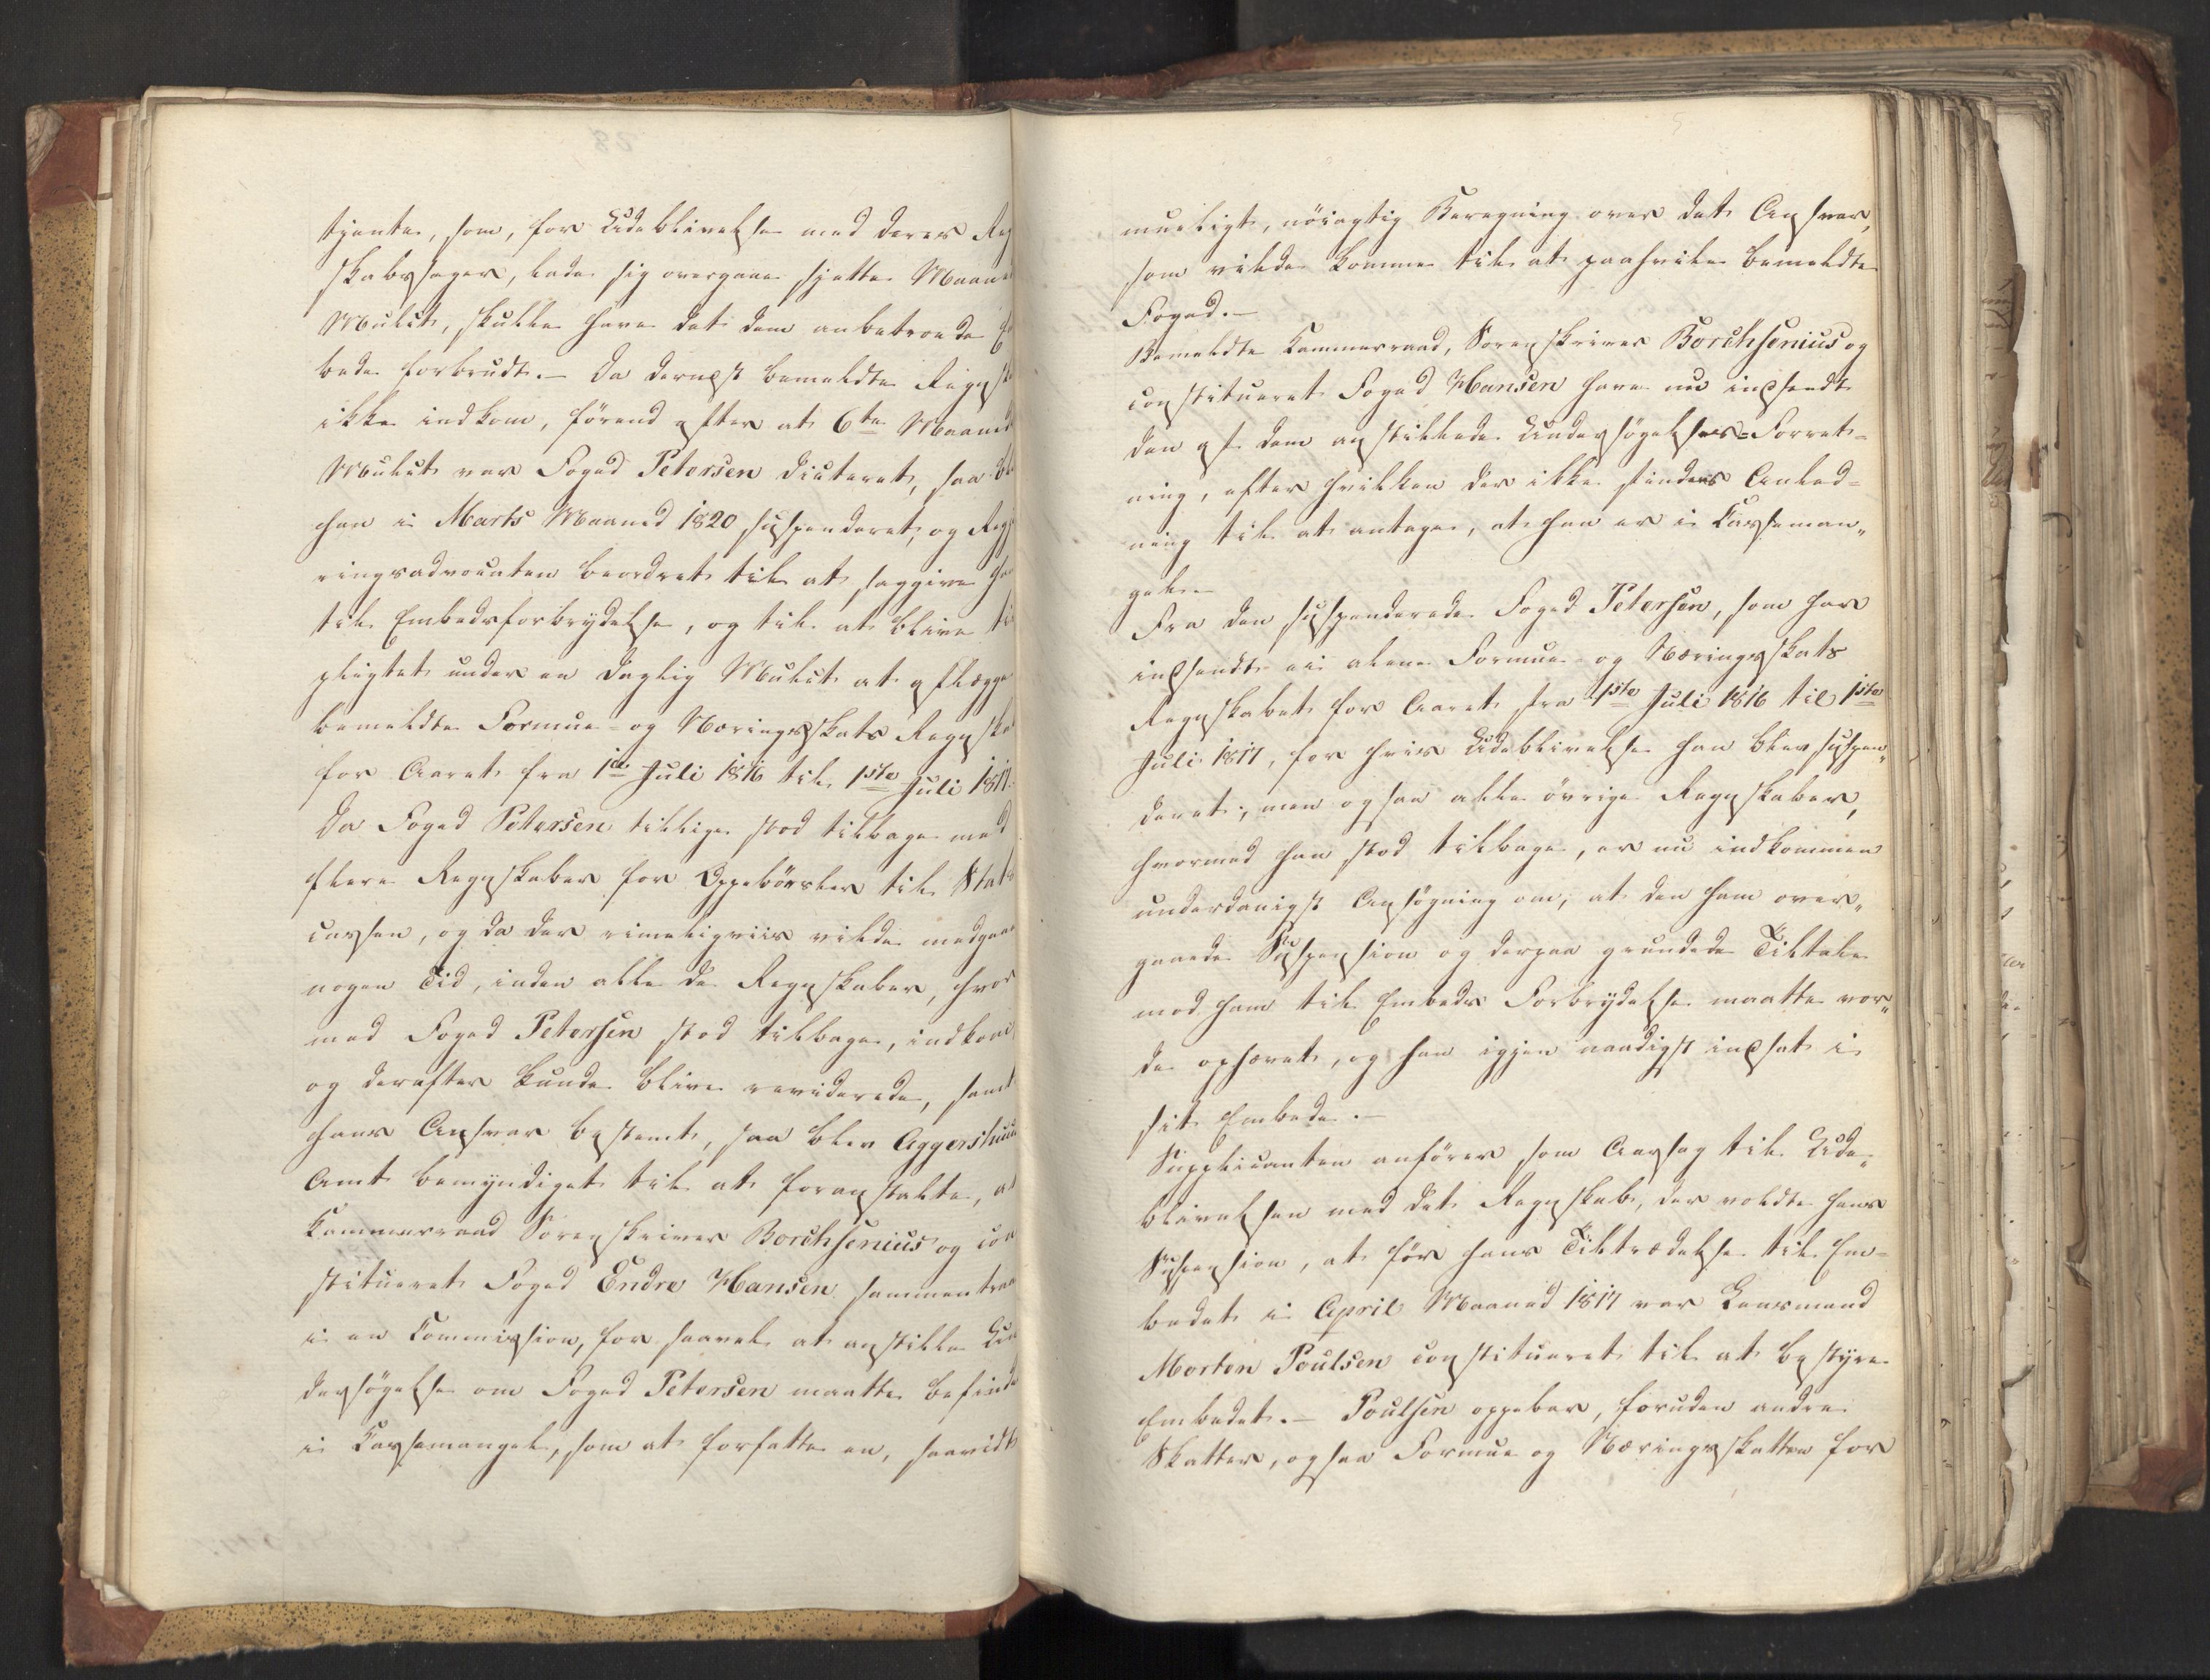 tjente, som, for Udeblivelse med deres Reg
skabssager, lade sig overgaae sjette Maaned
Mulct, skulle have det dem anbetroede E
bede forbrudt. – Da dernæst bemeldte Regnsk
ikke indkom, förend efter at 6te Maaned
Mulct var Foged Petersen dicteret, saa bl
han i Marts Maaned 1820 suspenderet, og Reg
ringsadvocaten beordret til at saggive ha
til Embedsforbrydelse, og til at blive til
pligtet under en daglig Mulct at aflægge
bemeldte Formue- og Næringsskats Regnska
for Aaret fra 1ste Juli 1816 til 1ste Juli 1817.
Da Foged Petersen tillige stod tilbage med
flere Regnskaber for Oppebörsler til Stats
cassen, og da der rimeligviis vilde medgaae
nogen Tid, inden alle de Regnskaber, hvor
med Foged Petersen stod tilbage, indkom
og derefter kunde blive reviderede, samt
hans Ansvar bestemt, saa blev Aggershuus
Amt bemyndiget til at foranstalte, at
Kammerraad Sorenskriver Borchsenius og con
stitueret Foged Endre Hansen sammentraa
i en Commission, for saavel at anstille Un
dersögelse om Foged Petersen maatte befinde
i Cassemangel, som at forfatte en, saavidt
mueligt, nöiagtig Beregning over det Ansvar,
som vilde komme til at paahvile bemeldte
Foged. –
Bemeldte Kammerraad, Sorenskriver Borchsenius og
constitueret Foged Hansen have nu indsendt
den af dem anstillede Undersögelses=Forret=
ning, efter hvilken der ikke findes Anled=
ning til at antage, at han er i Casseman„
gel. –
Fra den suspenderede Foged Petersen, som har
indsendt ei alene Formue- og Næringsskats
Regnskabet for Aaret fra 1ste Juli 1816 til 1ste
Juli 1817, for hvis Udeblivelse han blev suspen„
deret; men ogsaa alle övrige Regnskaber,
hvormed han stod tilbage, er nu indkommen
underdanigst Ansögning om, at den ham over„
gaaede Suspension og derpaa grundede Tiltale
mod ham til Embeds Forbrydelse maatte vor„
de ophævet, og han igjen naadigst indsat i
sit Embede. –
Supplicanten anförer som Aarsag til Ude„
blivelsen med det Regnskab, der voldte hans
Suspension, at för hans Tiltrædelse til Em=
bedet i April Maaned 1817 var Lensmand
Morten Poulsen constitueret til at bestyre
Embedet. – Poulsen oppebar, foruden andre
Skatter, ogsaa Formue og Næringsskatten for